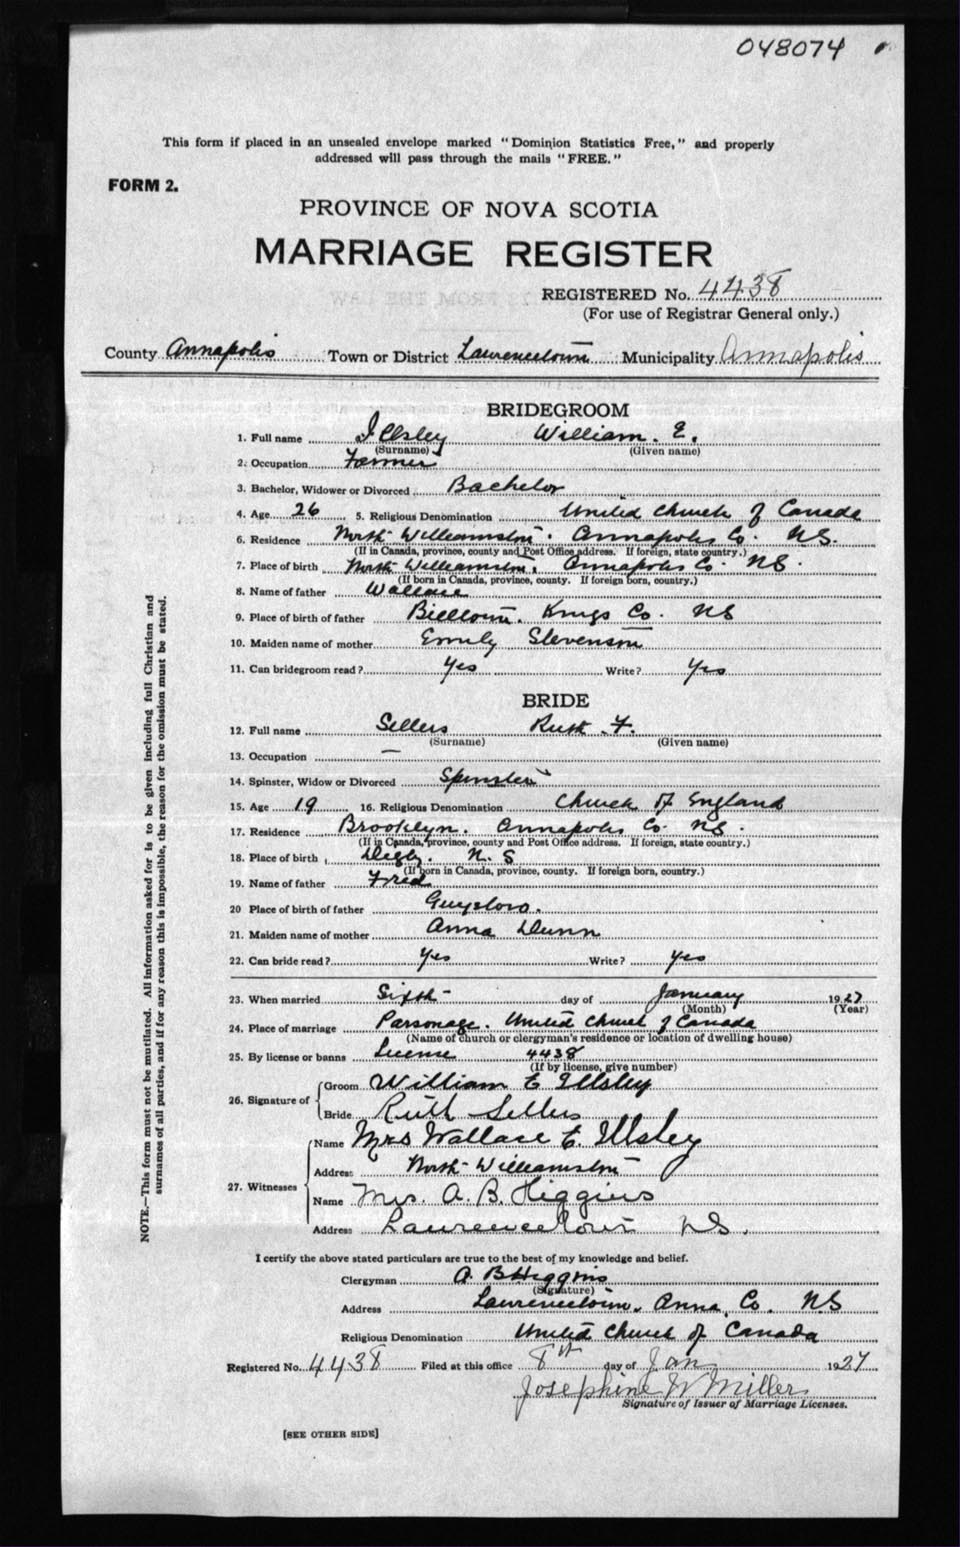 048074
This form if placed in an unsealed envelope marked "Dominion Statistics Free," and properly
addressed will pass through the mails "FREE."
FORM 2.
PROVINCE OF NOVA SCOTIA
MARRIAGE REGISTER
REGISTERED No. 4438
(For use of Registrar General only.)
County Annapolis Town or District Lawrencetown Municipality Annapolis
BRIDEGROOM
1. Full name Illsley William. E.
(Surname) (Given name)
2. Occupation Farmer
3. Bachelor, Widower or Divorced Bachelor
4. Age 26 5. Religious Denomination United Church of Canada
6. Residence North Williamston. Annapolis Co. N.S.
(If in Canada, province, county and Post Office address. If foreign, state country.)
7. Place of birth North Williamston. Annapolis Co. N.S.
(If born in Canada, province, county. If foreign born, country.)
8. Name of father Wallace
9. Place of birth of father Billtown. Kings Co. NS
10. Maiden name of mother Emily Stevenson
11. Can bridegroom read? Yes Write? Yes
BRIDE
12. Full name Sellers Ruth. F.
(Surname) (Given name)
13. Occupation —
14. Spinster, Widow or Divorced Spinster
15. Age 19 16. Religious Denomination Church of England
17. Residence Brooklyn. Annapolis Co. N.S.
(If in Canada, province, county and Post Office address. If foreign, state country.)
18. Place of birth Digby. N. S
(If born in Canada, province, county. If foreign born, country.)
19. Name of father Fred
20 Place of birth of father Guysboro.
21. Maiden name of mother Anna Dunn
22. Can bride read? Yes Write? Yes
23. When married Sixth day of January 1927
(Month) (Year)
24. Place of marriage Parsonage. United Church of Canada
(Name of church or clergyman's residence or location of dwelling house)
25. By license or banns License 4438
(If by license, give number)
26. Signature of Groom William E Illsley
Bride Ruth Sellers
27. Witnesses Name Mrs Wallace E. Illsley
Address North Williamston
Name Mrs. A. B. Higgins
Address Lawrencetown N.S.
I certify the above stated particulars are true to the best of my knowledge and belief.
Clergyman A. B Higgins
(Signature)
Address Lawrencetown. Anna. Co. N.S
Religious Denomination United Church of Canada
Registered No. 4438 Filed at this office 8th day of Jan 1927
Josephine W Miller
Signature of Issuer of Marriage Licenses.
[SEE OTHER SIDE]
NOTE.—This form must not be mutilated. All information asked for is to be given including full Christian and
surnames of all parties, and if for any reason this is impossible, the reason for the omission must be stated.